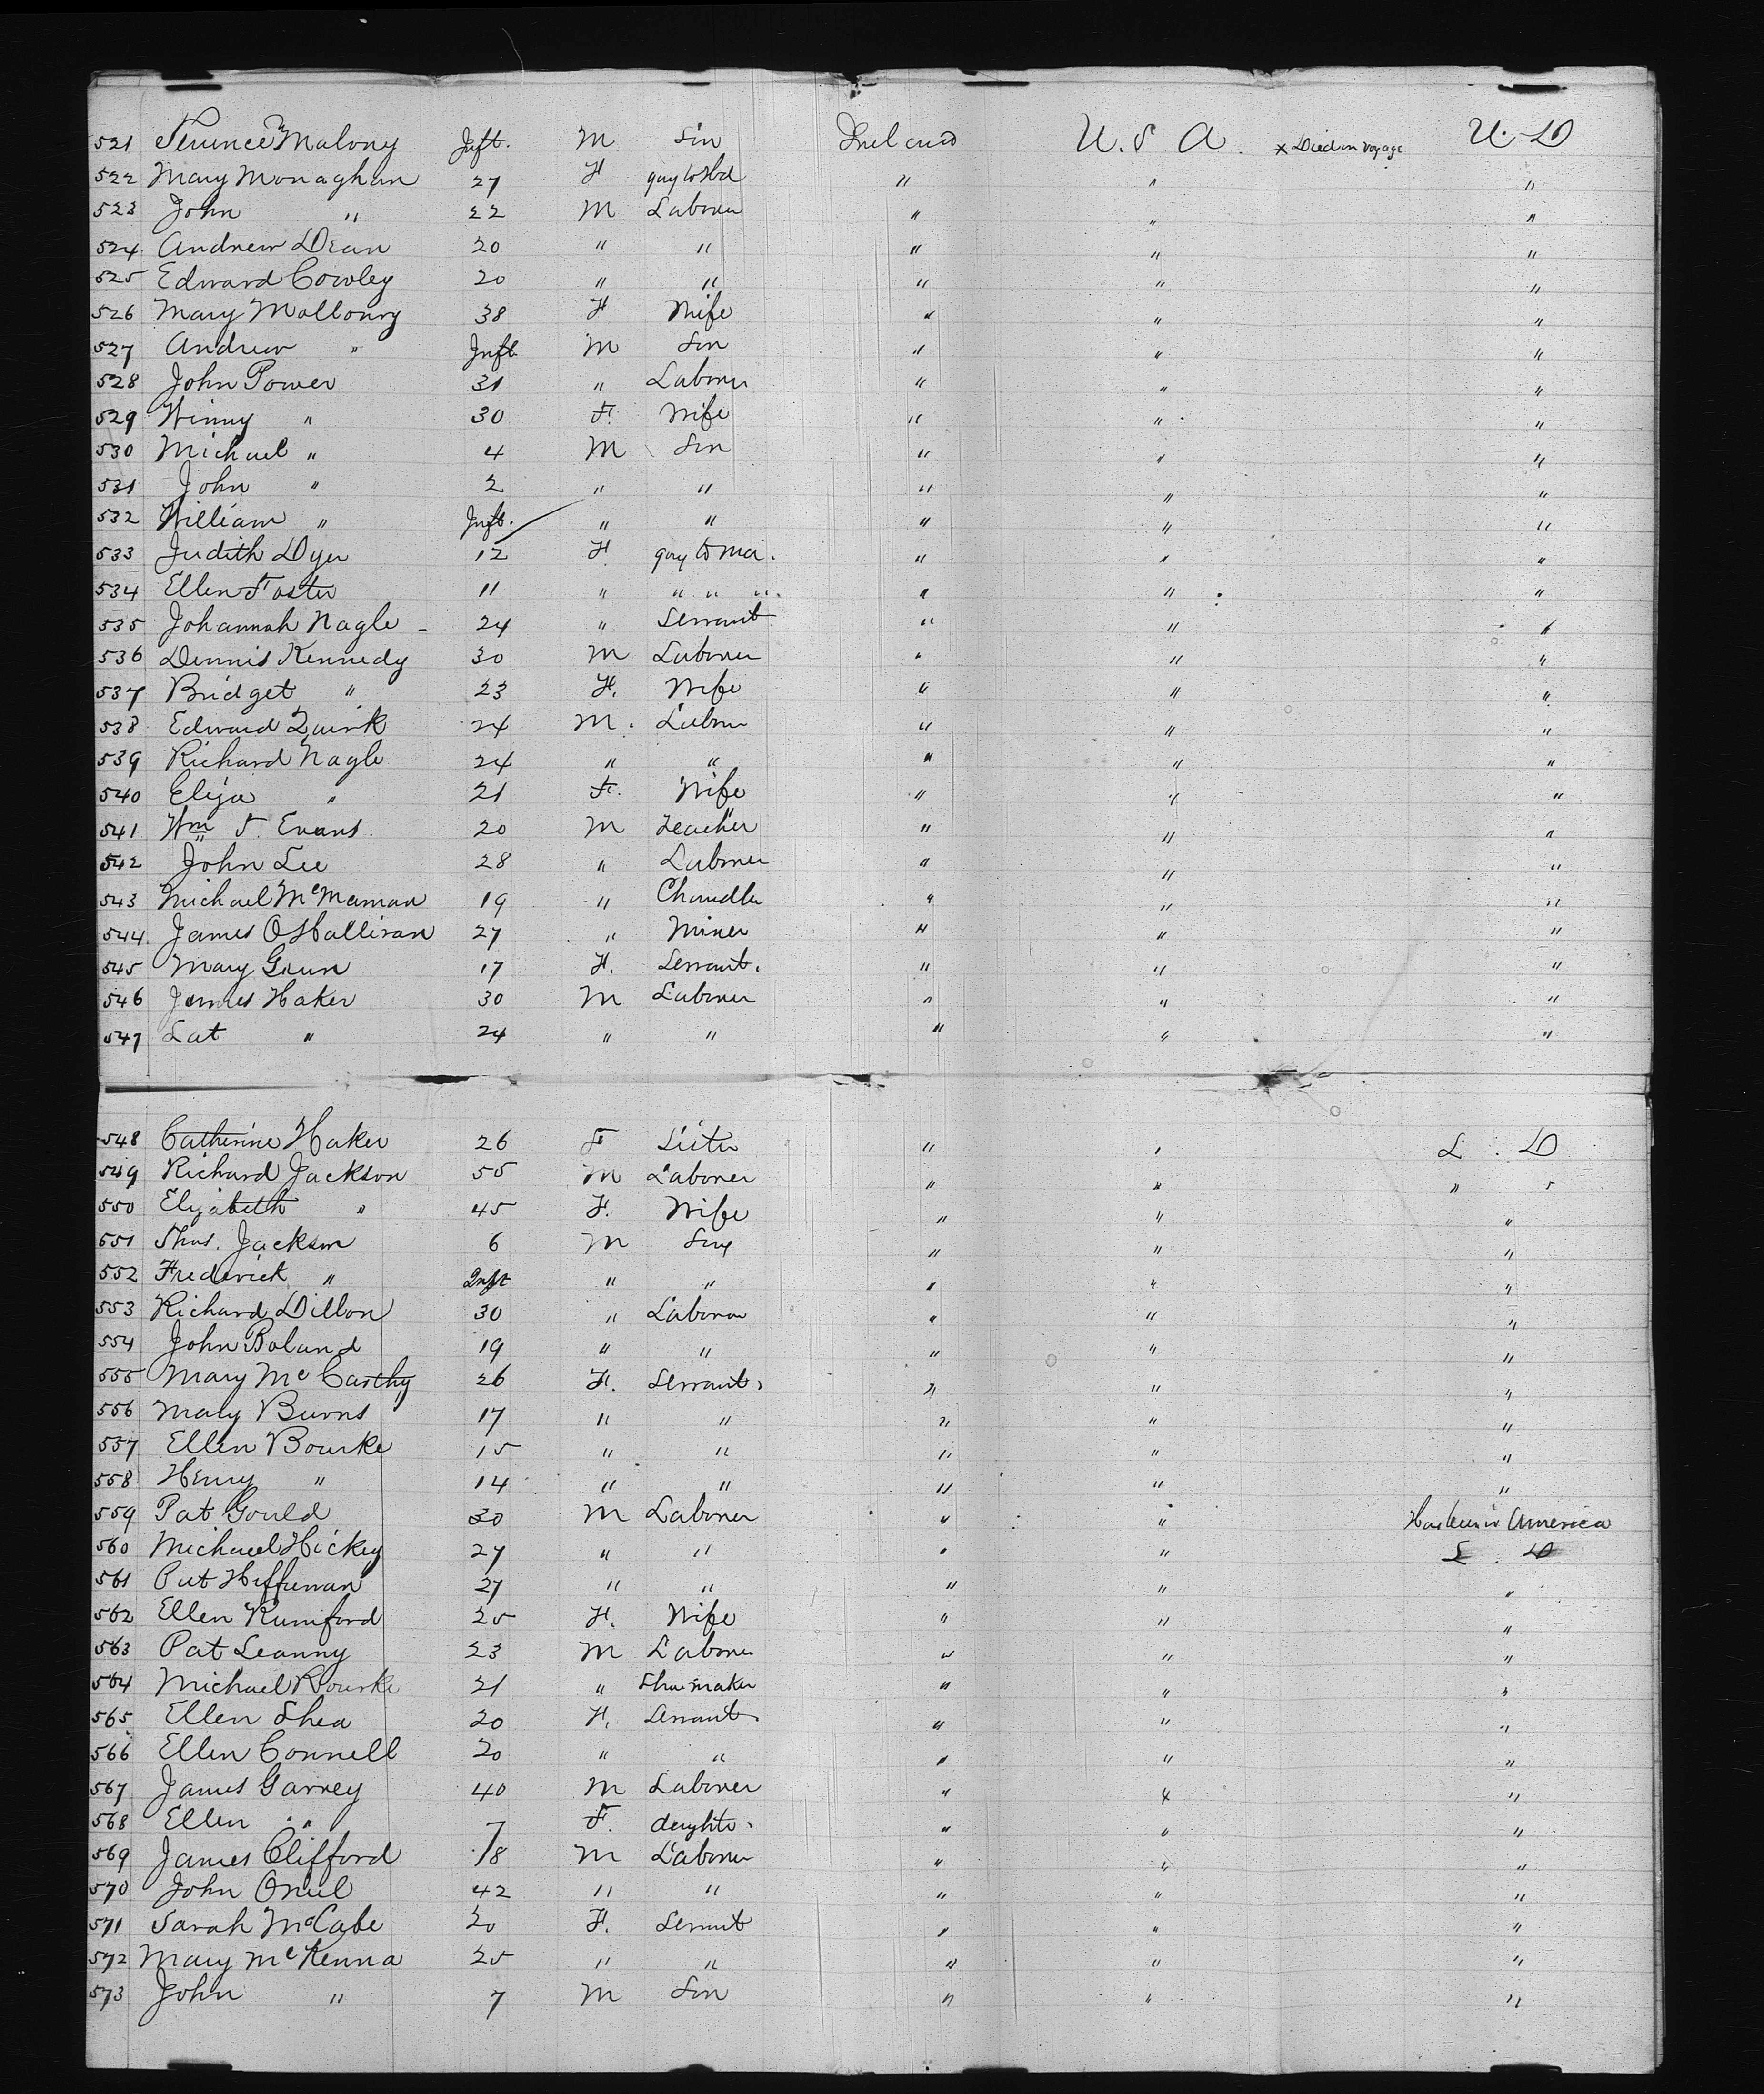 521 Terence Malony Inft. M Son Ireland U. S A. × Died on voyage U. D
522 Mary Monaghan 27 F goy to Hbd " " "
523 John " 22 M Laborer " " "
524 Andrew Dean 20 " " " " "
525 Edward Cowley 20 " " " " "
526 Mary Mollony 38 F Wife " " "
527 Andrew " Inft M Son " " "
528 John Power 31 " Laborer " " "
529 Winny " 30 F. Wife " " "
530 Michael " 4 M Son " " "
531 John " 2 " " " " "
532 William " Inft. " " " " "
533 Judith Dyer 12 F goy to Mar. " " "
534 Ellen Foster 11 " " " " " " "
535 Johannah Nagle 24 " Servant " " "
536 Dennis Kennedy 30 M Laborer " " "
537 Bridget " 23 F. Wife " " "
538 Edward Quirk 24 M. Labrer " " "
539 Richard Nagle 24 " " " " "
540 Eliza " 21 F. Wife " " "
541 Wm T. Evans 20 M Teacher " " "
542 John Lee 28 " Laborer " " "
543 Michael McMaman 19 " Chandler " " "
544 James OHalliran 27 " Miner " " "
545 Mary Gunn 17 F. Servant. " " "
546 James Haker 30 M Laborer " " "
547 Lat " 24 " " " " "
548 Catherine Haker 26 F Sister " " L. D
549 Richard Jackson 55 M Laborer " " " "
550 Elizabeth " 45 F. Wife " " "
551 Thos. Jackson 6 M Son " " "
552 Frederick " Inft " " " " "
553 Richard Dillon 30 " Laborer " " "
554 John Boland 19 " " " " "
555 Mary McCarthy 26 F. Servant. " " "
556 Mary Burns 17 " " " " "
557 Ellen Bourke 15 " " " " "
558 Henry " 14 " " " " "
559 Pat Gould 30 M Laborer " " Has been in America
560 Michael Hickey 27 " " " " L. D
561 Pat Heffernan 27 " " " " "
562 Ellen Rumford 25 F. Wife " " "
563 Pat Leanny 23 M Laborer " " "
564 Michael Rourke 21 " Shoemaker " " "
565 Ellen Shea 20 F. Servant. " " "
566 Ellen Connell 20 " " " " "
567 James Garvey 40 M Laborer " " "
568 Ellen " 7 F. daughter. " " "
569 James Clifford 18 M Laborer " " "
570 John Oniel 42 " " " " "
571 Sarah McCabe 20 F. Servant " " "
572 Mary McKenna 25 " " " " "
573 John " 7 M Son " " "